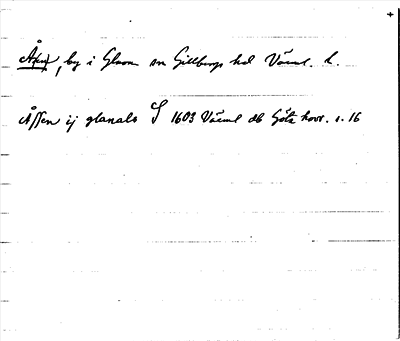 Åsen, by i Glava sn Gillbergs hd Värml. l.
Åssen ij glanals S 1603 Värml db Göta hovr. s. 16